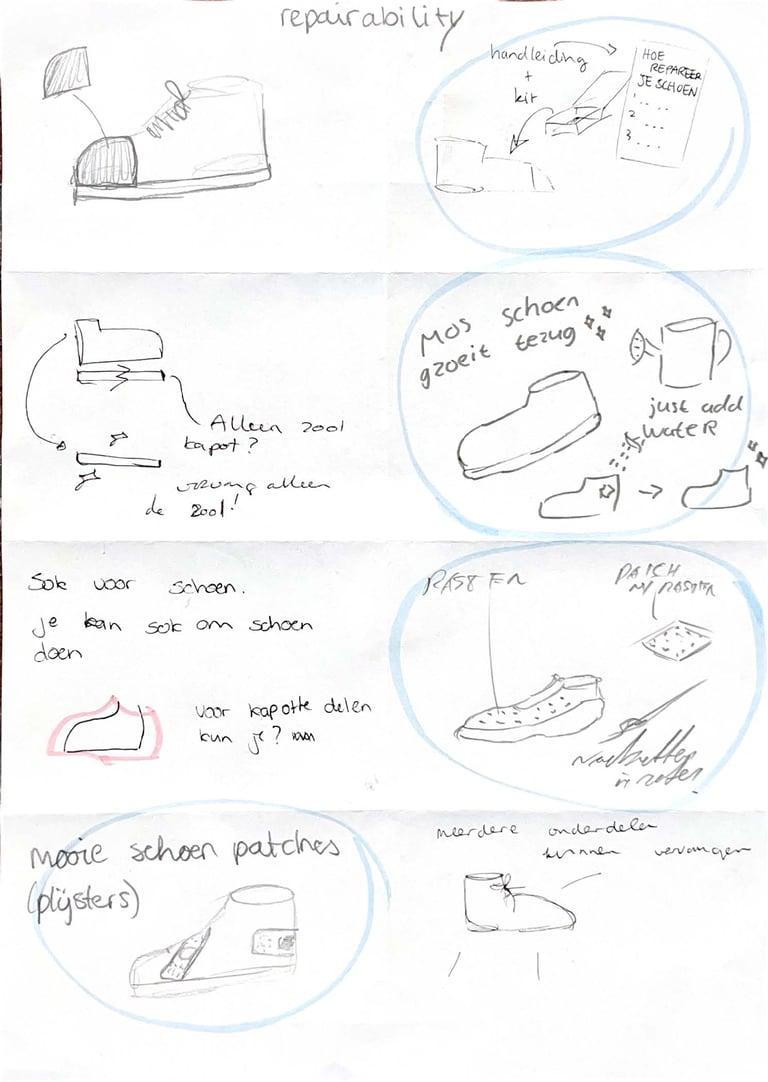 repairability
handleiding
+
kit
HOE
REPAREER
JE SCHOEN
1....
2 ...
3 ...
Alleen zool
kapot?
vervang alleen
de zool!
Mos schoen
groeit terug
just add
WATER
Sok voor schoen.
je kan sok om schoen
doen
voor kapotte delen
kun je?
RASTER
PATCH
M/ RASTER
mooie schoen patches
(plijsters)
meerdere onderdelen
kunnen vervangen